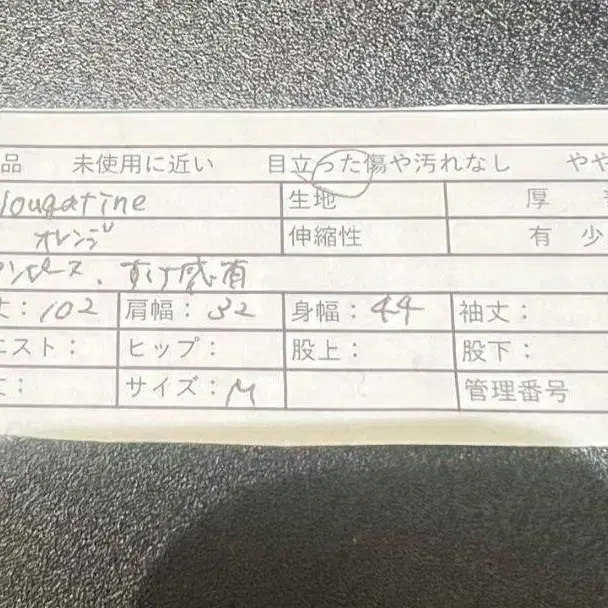 品 未使用に近い 目立った傷や汚れなし やや
lougatine 生地 厚
オレンジ 伸縮性 有 少
ンピース、すけ感有
丈：102 肩幅：32 身幅：44 袖丈：
エスト： ヒップ： 股上： 股下：
丈： サイズ：M 管理番号